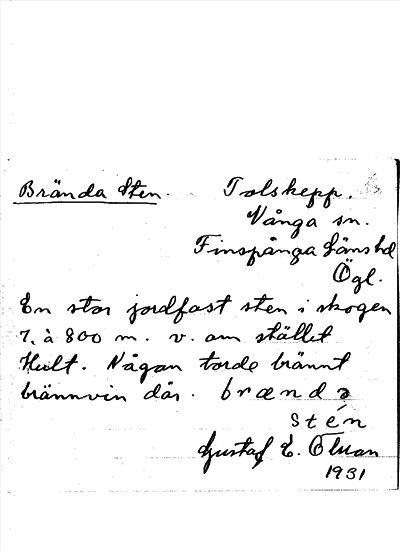 Brända Sten. Tolskepp.
Vånga sn.
Finspånga Länshd
Ögl.
En stor jordfast sten i skogen
7. à 800 m. v. om stället
Hult. Någon torde bränt
brännvin där. brændə
stén
Gustaf E. Öman
1931